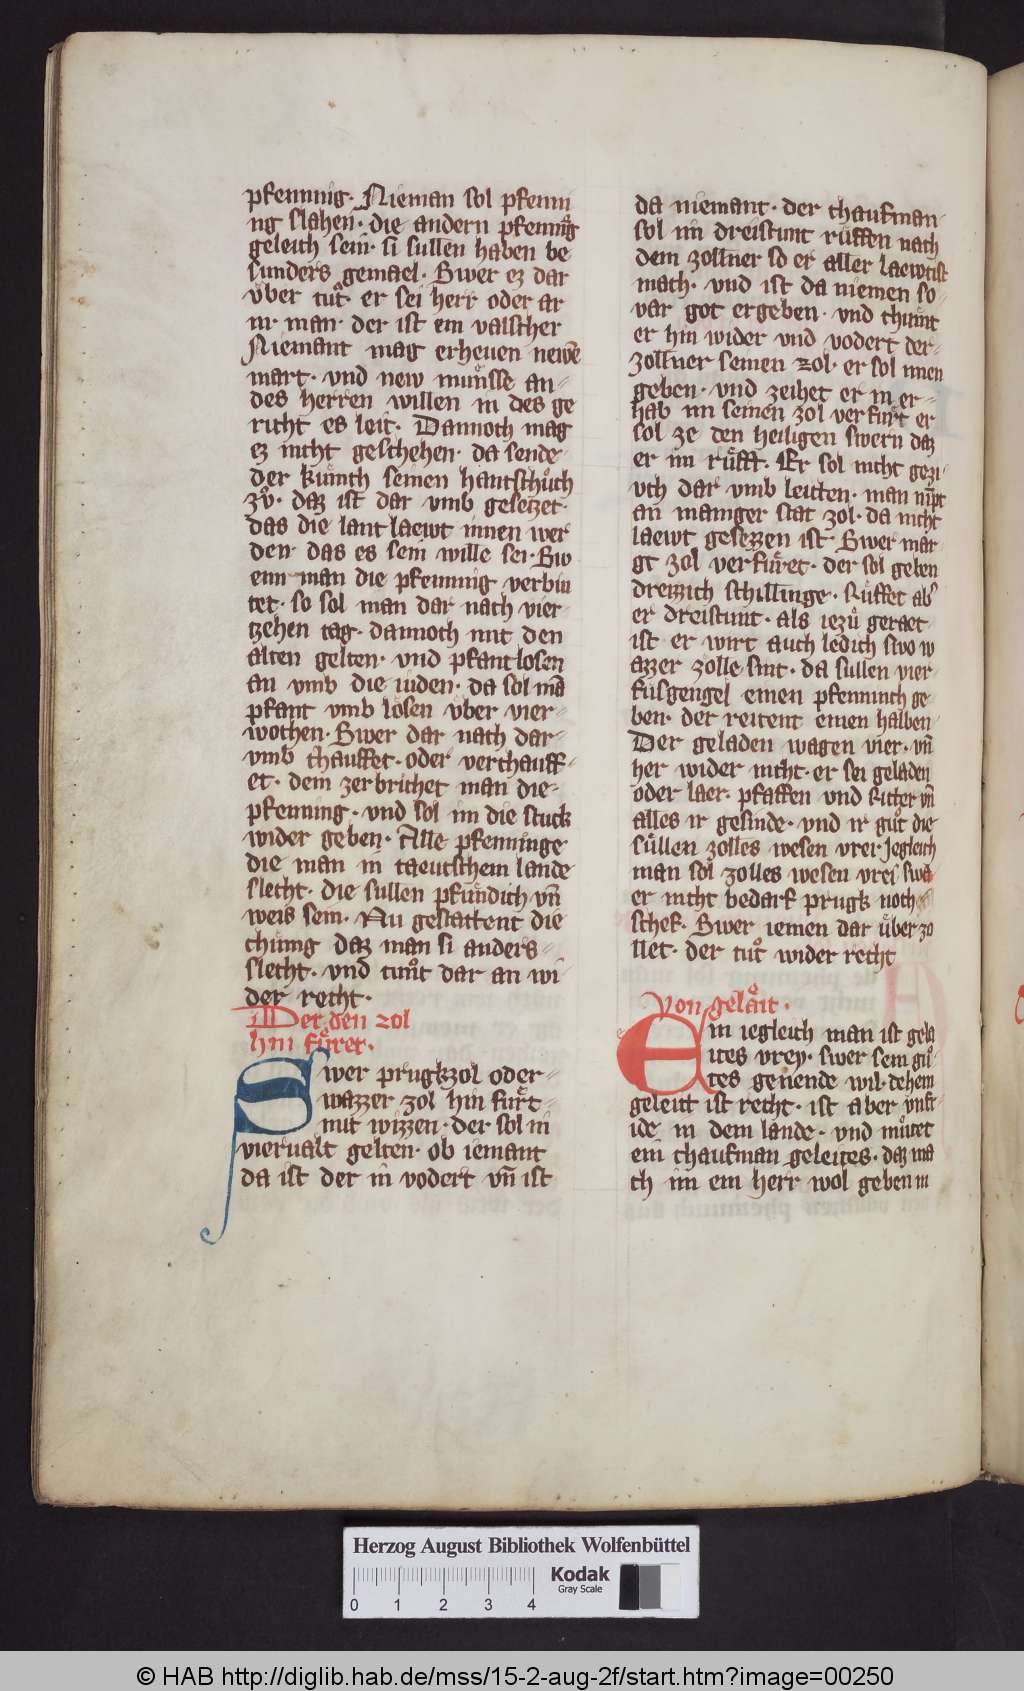 pfenning · Nieman sol pfenni
ng slahen · die andern pfenning
geleich sein · si sullen haben be
sunders gemael · Swer ez dar
vber tuͦt er sei herr oder ar
m man · der ist ein valscher
Niemant mag erheuen newē
mart · vnd new muͤnsse an
des herren willen in des ge
richt es leit · Dannoch mag
ez nicht geschehen · da sende
der kuͤnch seinen hantschuͦch
zuͦ · daz ist dar vmb gesetzet ·
das die lant laewt innen wer
den das es sein wille sei · Sw
enn man die pfenning verbiu
tet · so sol man dar nach vier
tzehen tag · dannoch mit den
alten gelten · vnd pfant losen
an vmb die iuden · da sol mā
pfant vmb lösen vber vier
wochen · Swer dar nach dar
vmb chauffet · oder verchauff
et · dem zerbrichet man die
pfenning · vnd sol im die stuck
wider geben · Alle pfenninge
die man in taeutschem lande
slecht · die sullen pfundich vn̄
weis sein · Nu gestattent die
chuͤnig daz man si anders
slecht · vnd tuͦnt dar an wi
der recht ·
Der den zol
hin fuͤret ·
Swer prugkzol oder
wazzer zol hin fuͤrt
mit wizzen · der sol in
viervalt gelten · ob iemant
da ist der in vodert vn̄ ist
da niemant · der chaufman
sol im dreistunt ruͤffen nach
dem zollner so er aller laewtist
mach · vnd ist da niemen so
var got ergeben · vnd chuͤmt
er hin wider vnd vodert der
zollner seinen zol · er sol inen
geben · vnd zeihet er in er
hab im seinen zol verfuͤrt er
sol ze den heiligen swern daz
er im ruͤfft · Er sol nicht gezi
vch dar vmb leitten · man nīpt
an maniger stat zol · da nicht
laewt gesezzen ist Swer mar
gt zol verfuͤret · der sol geben
dreizzich schillinge · Ruͤffet ab
er dreistunt · als iezuͦ geraet
ist er wirt auch ledich swo w
azzer zölle sint · da sullen vier
fusgengel einen pfennich ge
ben · der reitent einen halben
Der geladen wagen vier · vn̄
her wider nicht · er sei geladen
oder laer · pfaffen vnd Ritter vn̄
alles ir gesinde · vnd ir guͦt die
suͤllen zolles wesen vrei · Jegleich
man sol zolles wesen vrei swa
er nicht bedarf prugk noch
schef · Swer iemen dar uͤber zo
llet · der tuͦt wider recht
Von gelaͤit ·
Ein iegleich man ist gela
ites vrey · swer sein guͦ
tes genende wil · dehein
geleitt ist recht · ist aber vnfr
ide in dem lande · vnd muͦtet
ein chaufman geleites · daz ma
ch im ein herr wol geben in
Herzog August Bibliothek Wolfenbüttel
0 1 2 3 4
Kodak
Gray Scale
© HAB http://diglib.hab.de/mss/15-2-aug-2f/start.htm?image=00250